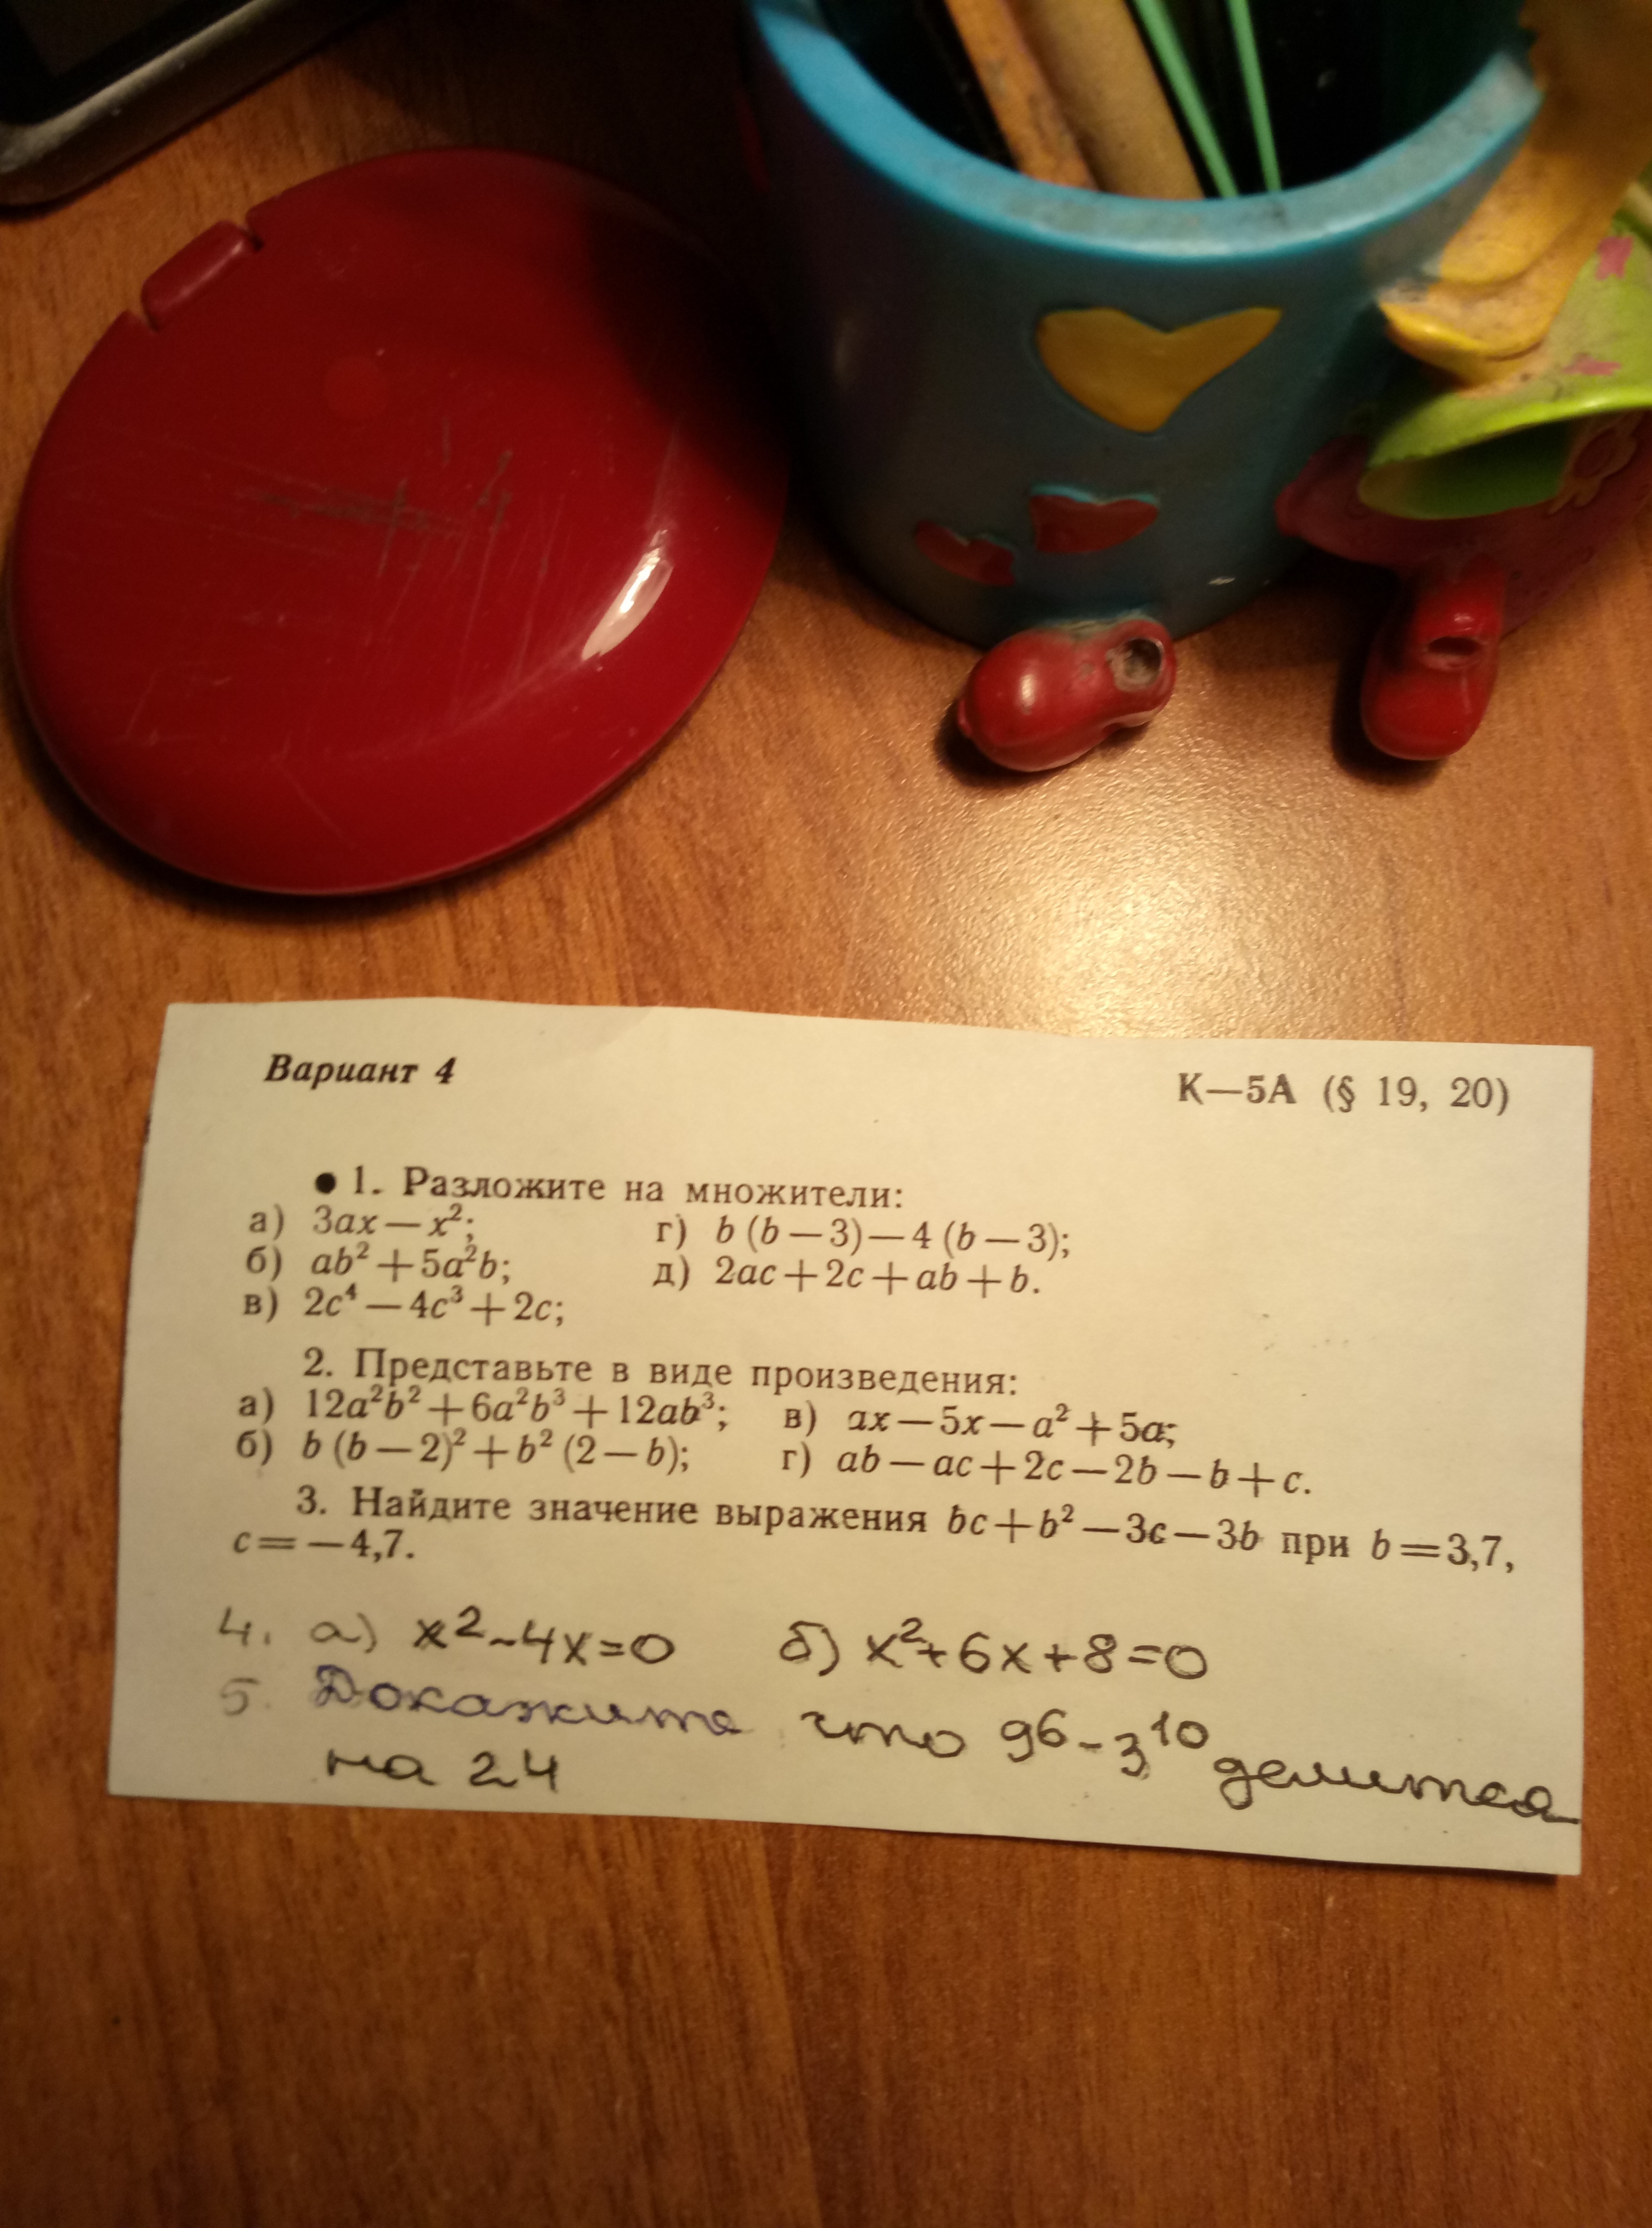 Вариант 4
К—5А (§ 19, 20)
● 1. Разложите на множители:
а) 3ax — x²; г) b (b — 3) — 4 (b — 3);
б) ab² + 5a²b; д) 2ac + 2c + ab + b.
в) 2c⁴ — 4c³ + 2c;
2. Представьте в виде произведения:
а) 12a²b² + 6a²b³ + 12ab³; в) ax — 5x — a² + 5a;
б) b (b — 2)² + b² (2 — b); г) ab — ac + 2c — 2b — b + c.
3. Найдите значение выражения bc + b² — 3c — 3b при b = 3,7,
c = — 4,7.
4. а) x² - 4x = 0 б) x² + 6x + 8 = 0
5. Докажите что 9⁶ - 3¹⁰ делится
на 24